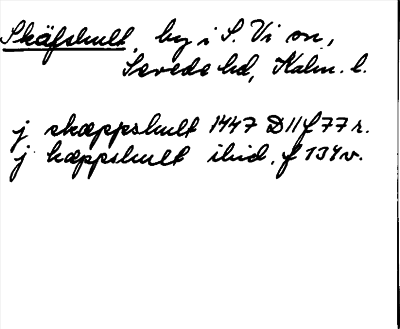 Skäfshult, by i S. Vi sn,
Sevede hd, Kalm. l.
j skæppshult 1447 D11 f 77 r.
j hæppshult ibid. f 134 v.